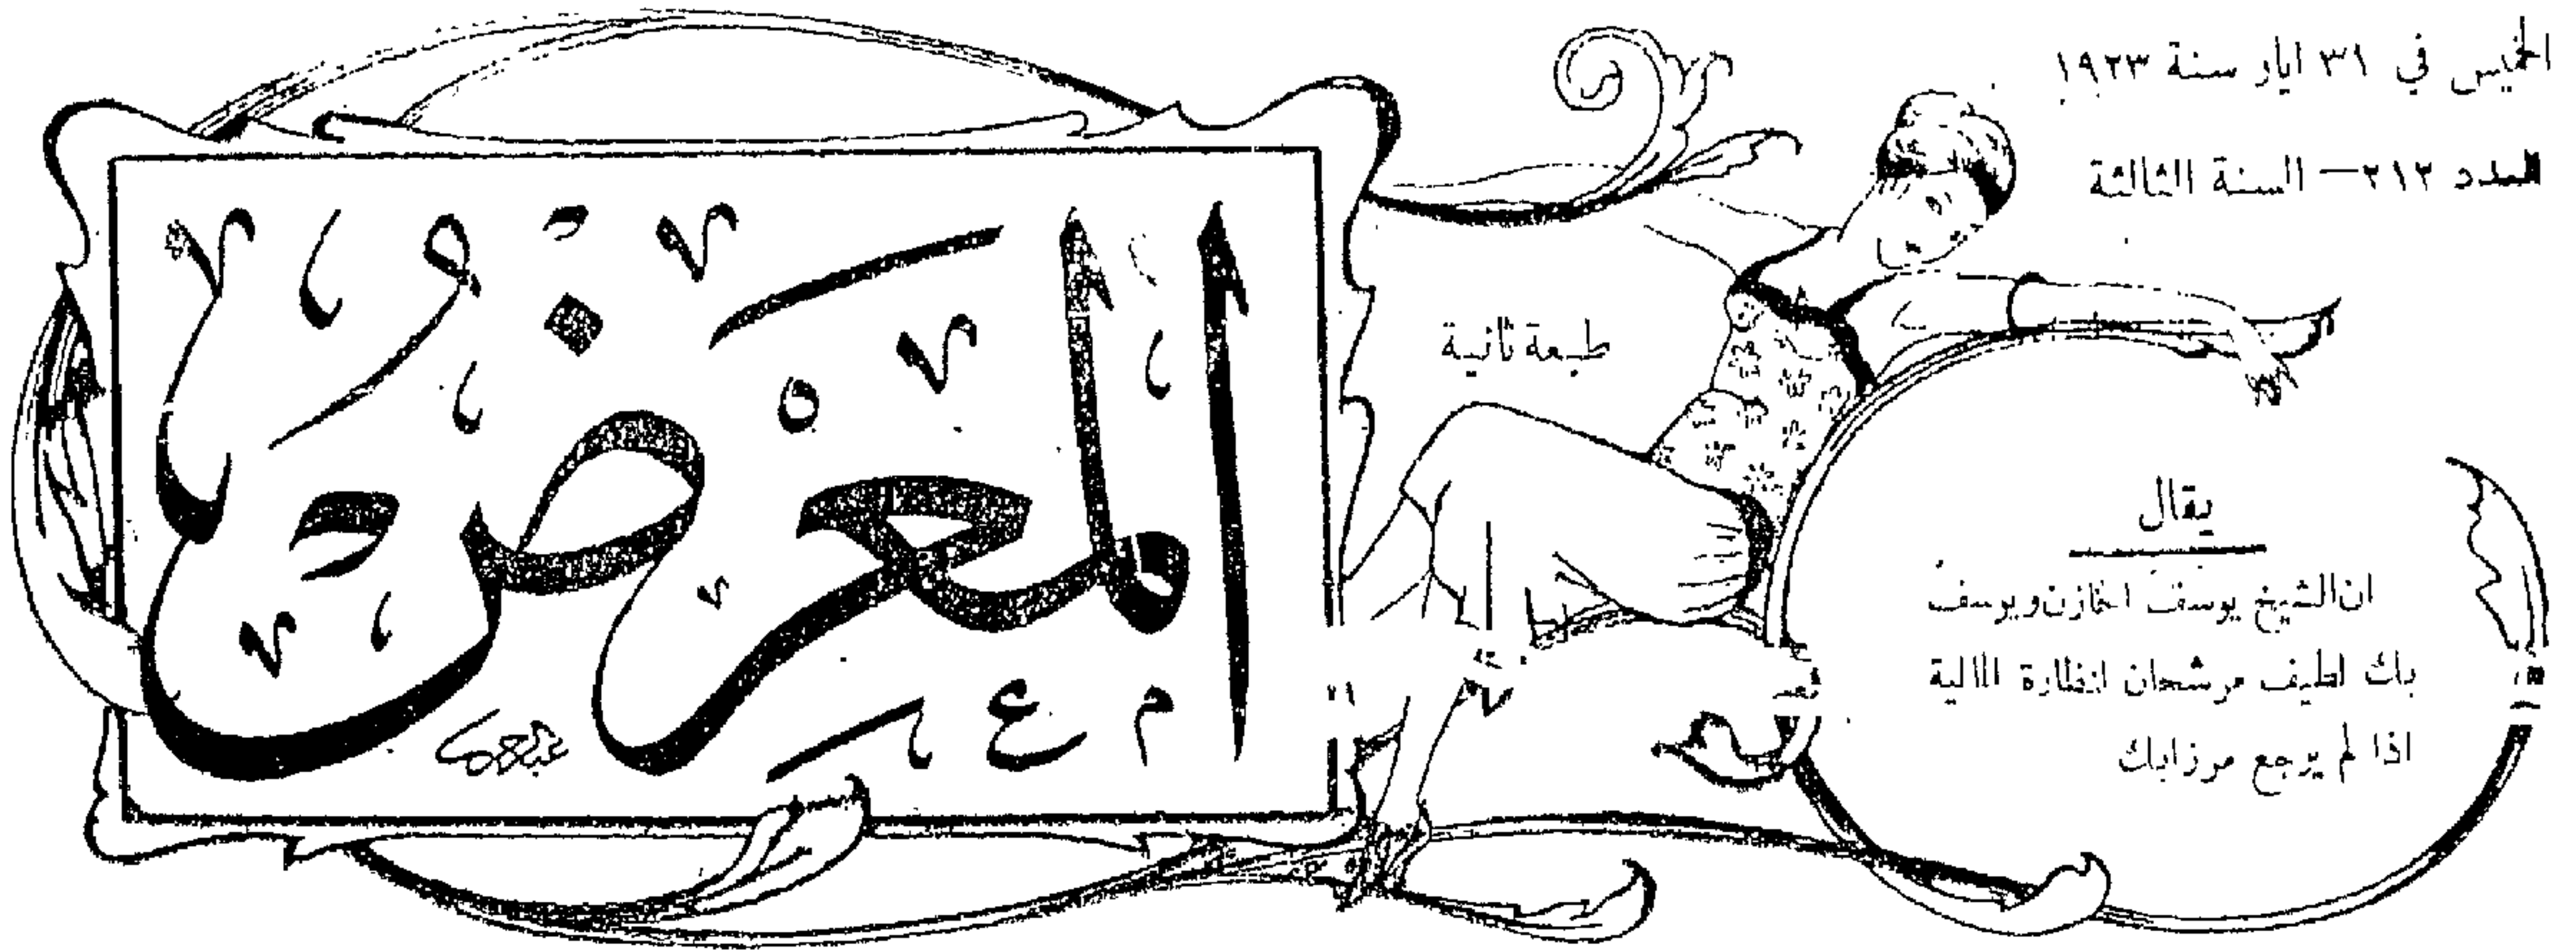 الخميس في ٣١ ايار سنة ١٩٢٣
العدد ٢١٢ — السنة الثالثة
طبعة ثانية
المعرض
يقال
ان الشيخ يوسف الخازن ويوسف
بك لطيف مرشحان لنظارة المالية
اذا لم يرجع مرزا بك